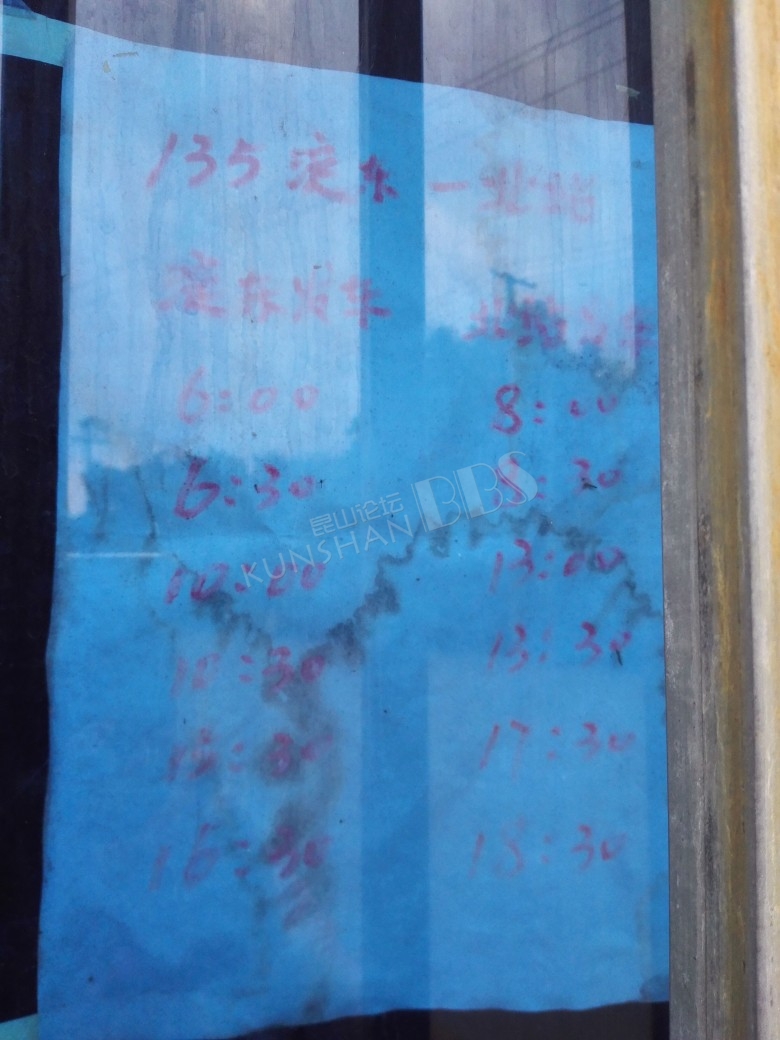 135 淀东 - 北站
淀东发车 北站发车
6:00 8:00
6:30 8:30
10:00 13:00
10:30 13:30
15:30 17:30
16:30 18:30
昆山论坛
KUNSHAN BBS